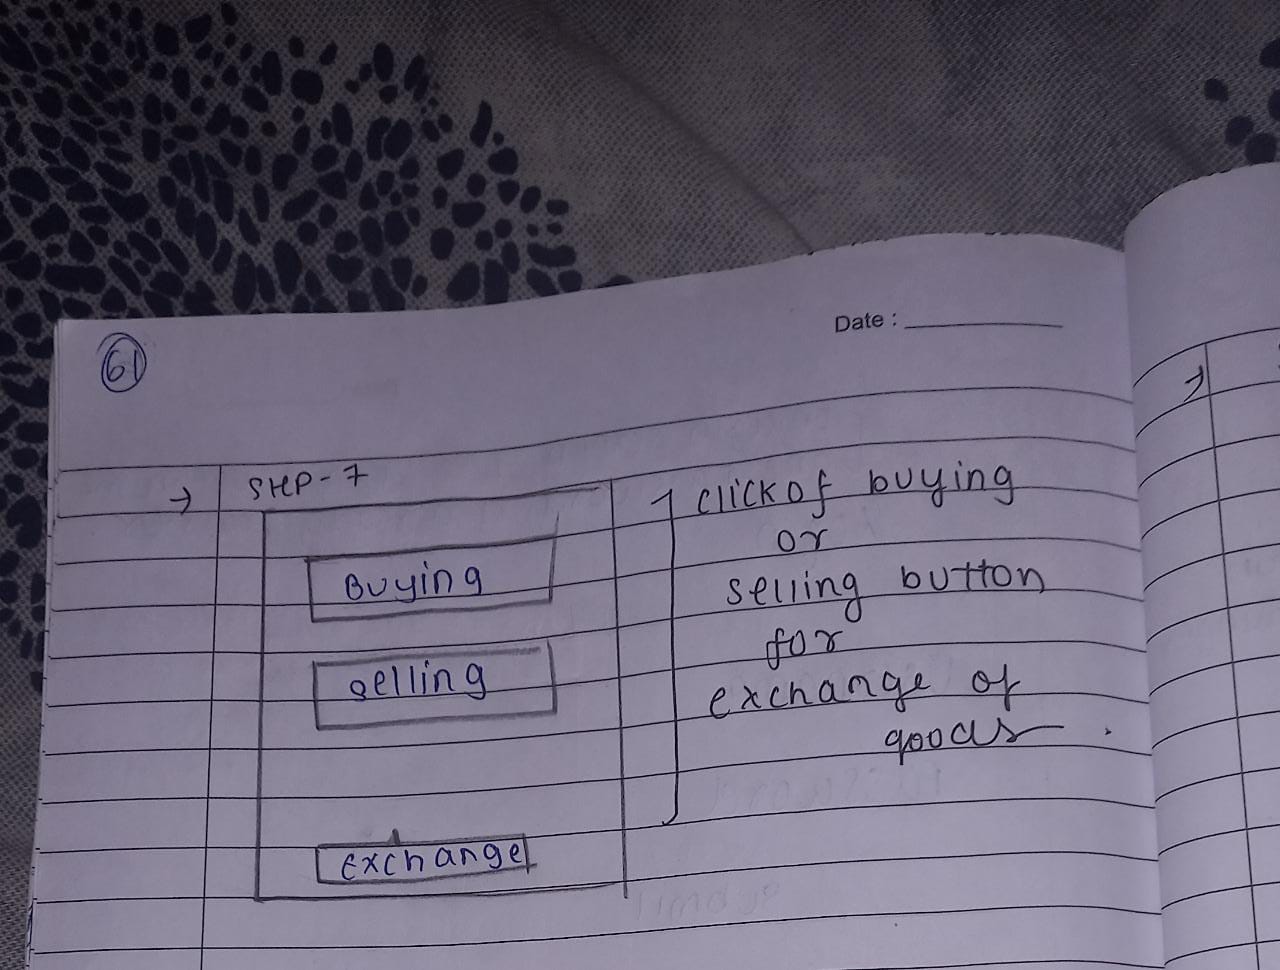 61
Date :
→ Step-7
Buying
selling
exchange
click of buying
or
selling button
for
exchange of
goods.